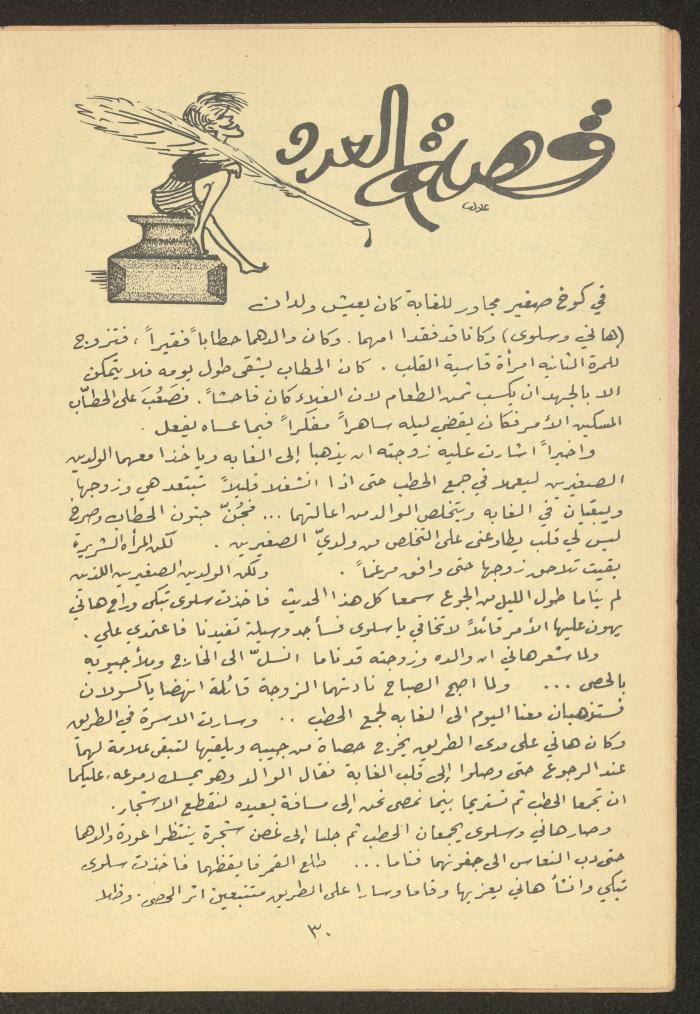 قصة العدد
في كوخ صغير مجاور للغابة كان يعيش ولدان
(هاني وسلوى) وكانا قد فقدا امهما. وكان والدهما حطاباً فقيراً، فتزوج
للمرة الثانيه امرأة قاسية القلب. كان الحطاب يشقى طول يومه فلا يتمكن
الا بالجهد ان يكسب ثمن الطعام لان الغلاء كان فاحشاً. فصَعُبَ على الحطّاب
المسكين الأمر فكان يقضي ليله ساهراً مفكراً فيما عساه يفعل.
واخيراً اشارت عليه زوجته ان يذهبا إلى الغابه وياخذا معهما الولدين
الصغيرين ليعملا في جمع الحطب حتى اذا انشغلا قليلاً تبتعد هي وزوجها
ويبقيان في الغابه ويتخلص الوالد من اعالتهما ... فجُنّ جنون الحطاب وصرخ
ليس لي قلب يطاوعني على التخلص من ولديّ الصغيرين. لكن المرأه الشريرة
بقيت تلاحق زوجها حتى وافق مرغماً. ولكن الولدين الصغيرين اللذين
لم يناما طول الليل من الجوع سمعا كل هذا الحديث فاخذت سلوى تبكي وراح هاني
يهون عليها الأمر قائلاً لا تخافي يا سلوى فسأجد وسيلة تفيدنا فاعتمدي علي.
ولما شعر هاني ان والده وزوجته قد ناما انسلّ الى الخارج وملأ جيوبه
بالحصى ... ولما اصبح الصباح نادتهما الزوجة قائلة انهضا ياكسولان
فستذهبان معنا اليوم الى الغابه لجمع الحطب .. وسارت الاسرة في الطريق
وكان هاني على مدى الطريق يخرج حصاة من جيبه ويلقيها لتبقى علامة لهما
عند الرجوع حتى وصلوا إلى قلب الغابة فقال الوالد وهو يمسك دموعه، عليكما
ان تجمعا الحطب ثم تستريحا بينما نمضي نحن إلى مسافة بعيده لنقطع الاشجار.
وصار هاني وسلوى يجمعان الحطب ثم جلسا إلى غصن شجرة ينتظرا عودة والدهما
حتى دب النعاس الى جفونهما فناما ... طلع القمر فايقظهما فاخذت سلوى
تبكي وانشأ هاني يعزيها وقاما وسارا على الطريق متتبعين اثر الحصى. وظلا
٣٠